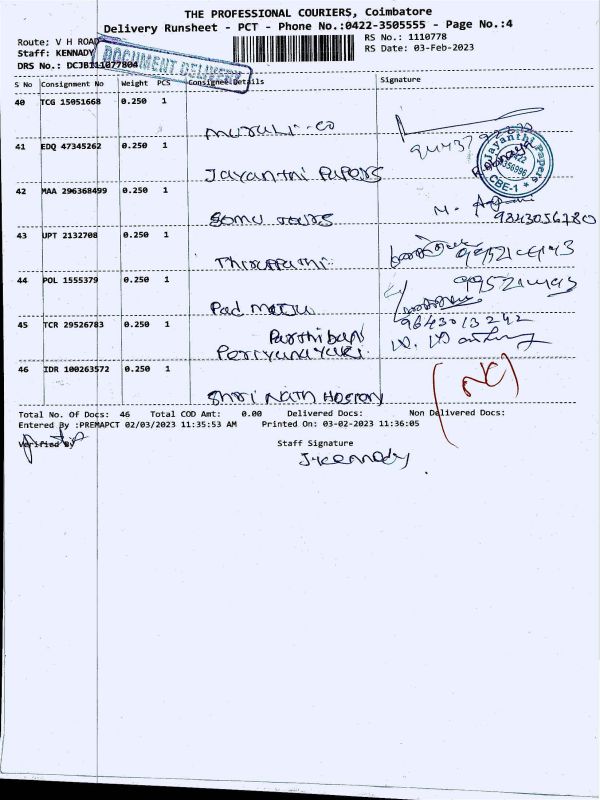 THE PROFESSIONAL COURIERS, Coimbatore
Delivery Runsheet - PCT - Phone No.:0422-3505555 - Page No.:4
Route: V H ROAD
RS No.: 1110778
Staff: KENNADY
RS Date: 03-Feb-2023
DRS No.: DCJB111077804
DOCUMENT DELIVERY
S No Consignment No Weight PCS Consignee Details Signature
40 TCG 15051668 0.250 1
41 EDQ 47345262 0.250 1
Jayanthi Papers
Jayanthi Papers
CBE-1
42 MAA 296368499 0.250 1
Somu Tours
9843056780
43 UPT 2132708 0.250 1
Thiruppathi
44 POL 1555379 0.250 1
45 TCR 29526783 0.250 1
Parthiban
9843013242
46 IDR 100263572 0.250 1
(NC)
Total No. Of Docs: 46 Total COD Amt: 0.00 Delivered Docs: Non Delivered Docs:
Entered By :PREMAPCT 02/03/2023 11:35:53 AM Printed On: 03-02-2023 11:36:05
Verified By
Staff Signature
J. Kennady